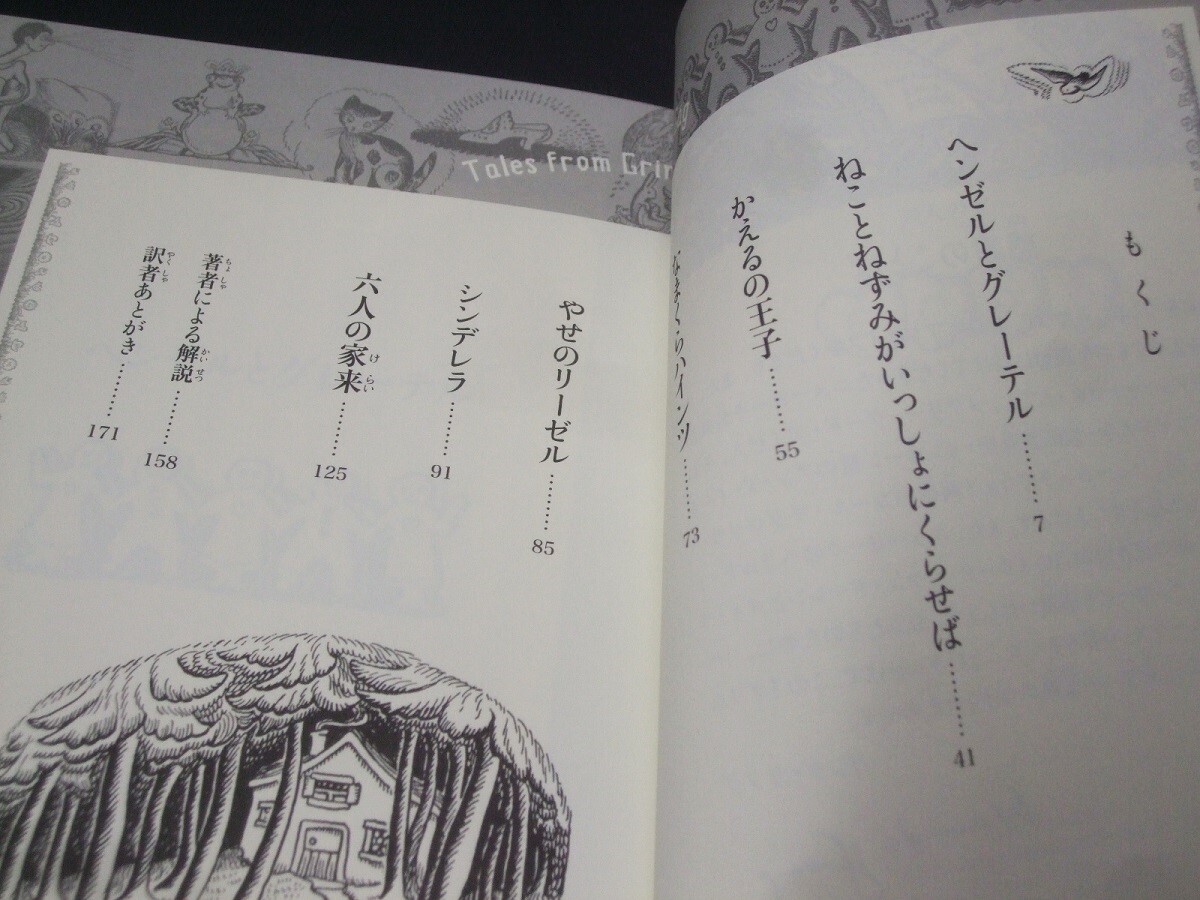 Tales from Grim
もくじ
ヘンゼルとグレーテル………7
ねことねずみがいっしょにくらせば………41
かえるの王子………55
なまくらハインツ………73
やせのリーゼル………85
シンデレラ………91
六人の家来………125
著者による解説………158
訳者あとがき………171